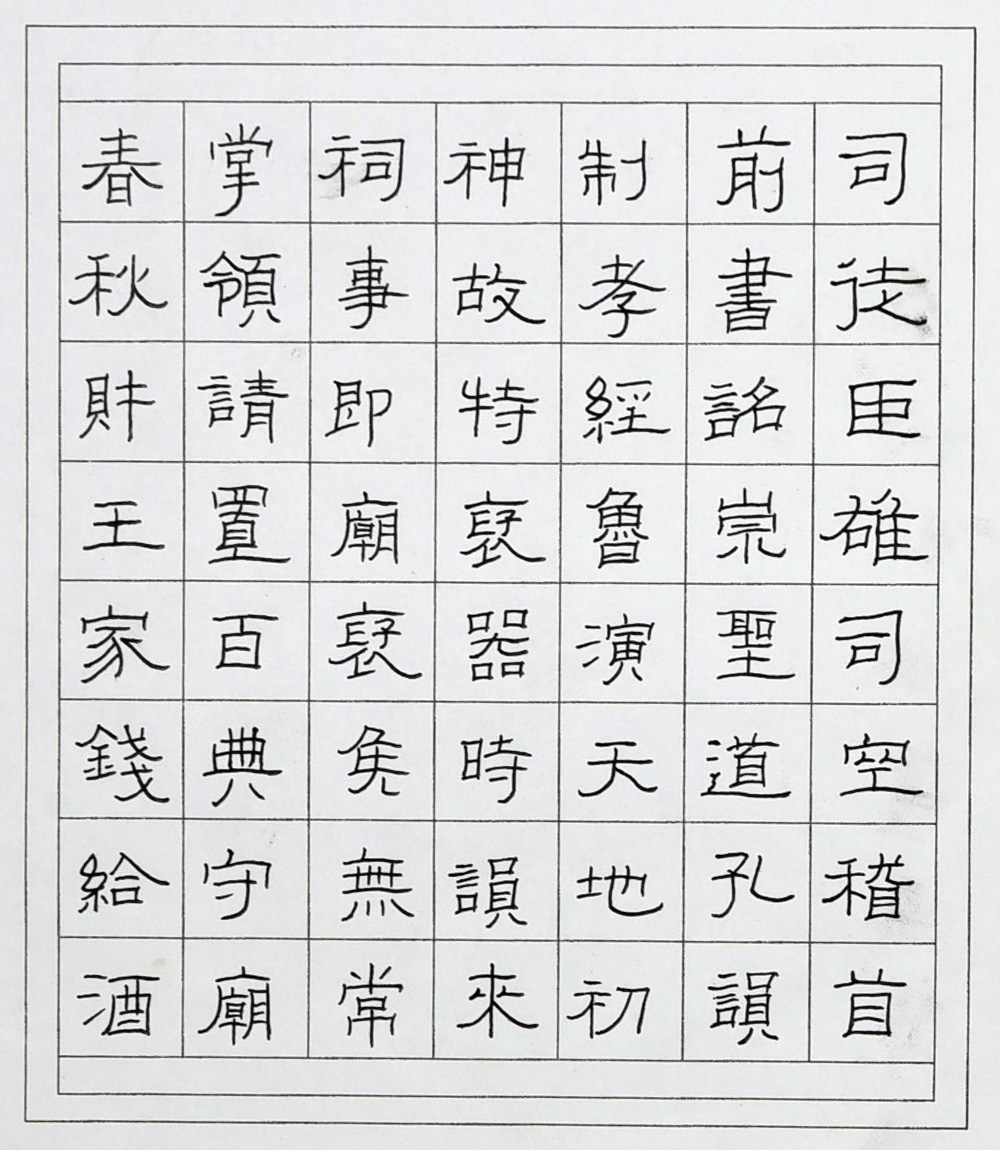 司徒臣雄司空稽首
前書詔崇聖道孔
制孝經魯演天地初
神故特褒器時來
祠事即廟褒矦無常
掌領請置百典守廟
春秋財王家錢給酒